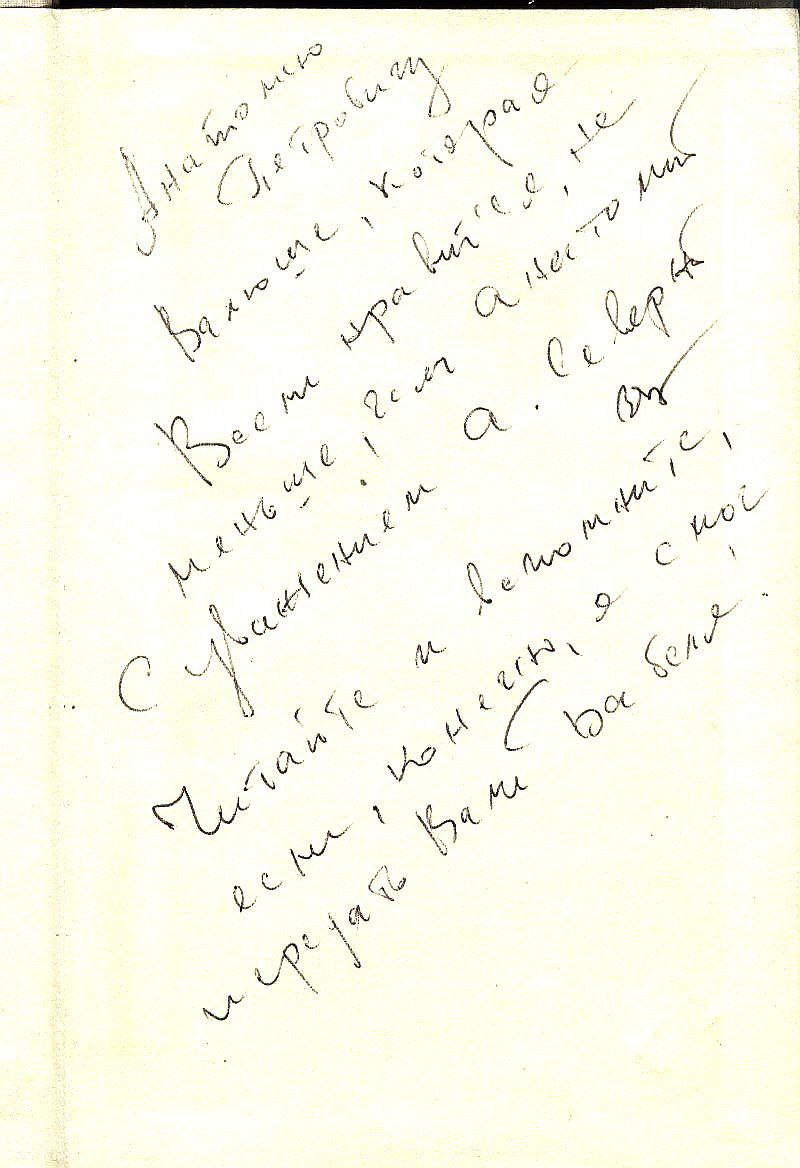 Анатолию
Петровичу
Валюше, которая
Всем нравится, не
меньше, чем Анатолий
С уважением А. Северный
Читайте и вспомните,
если, конечно, я смог
передать Вам Бабеля!